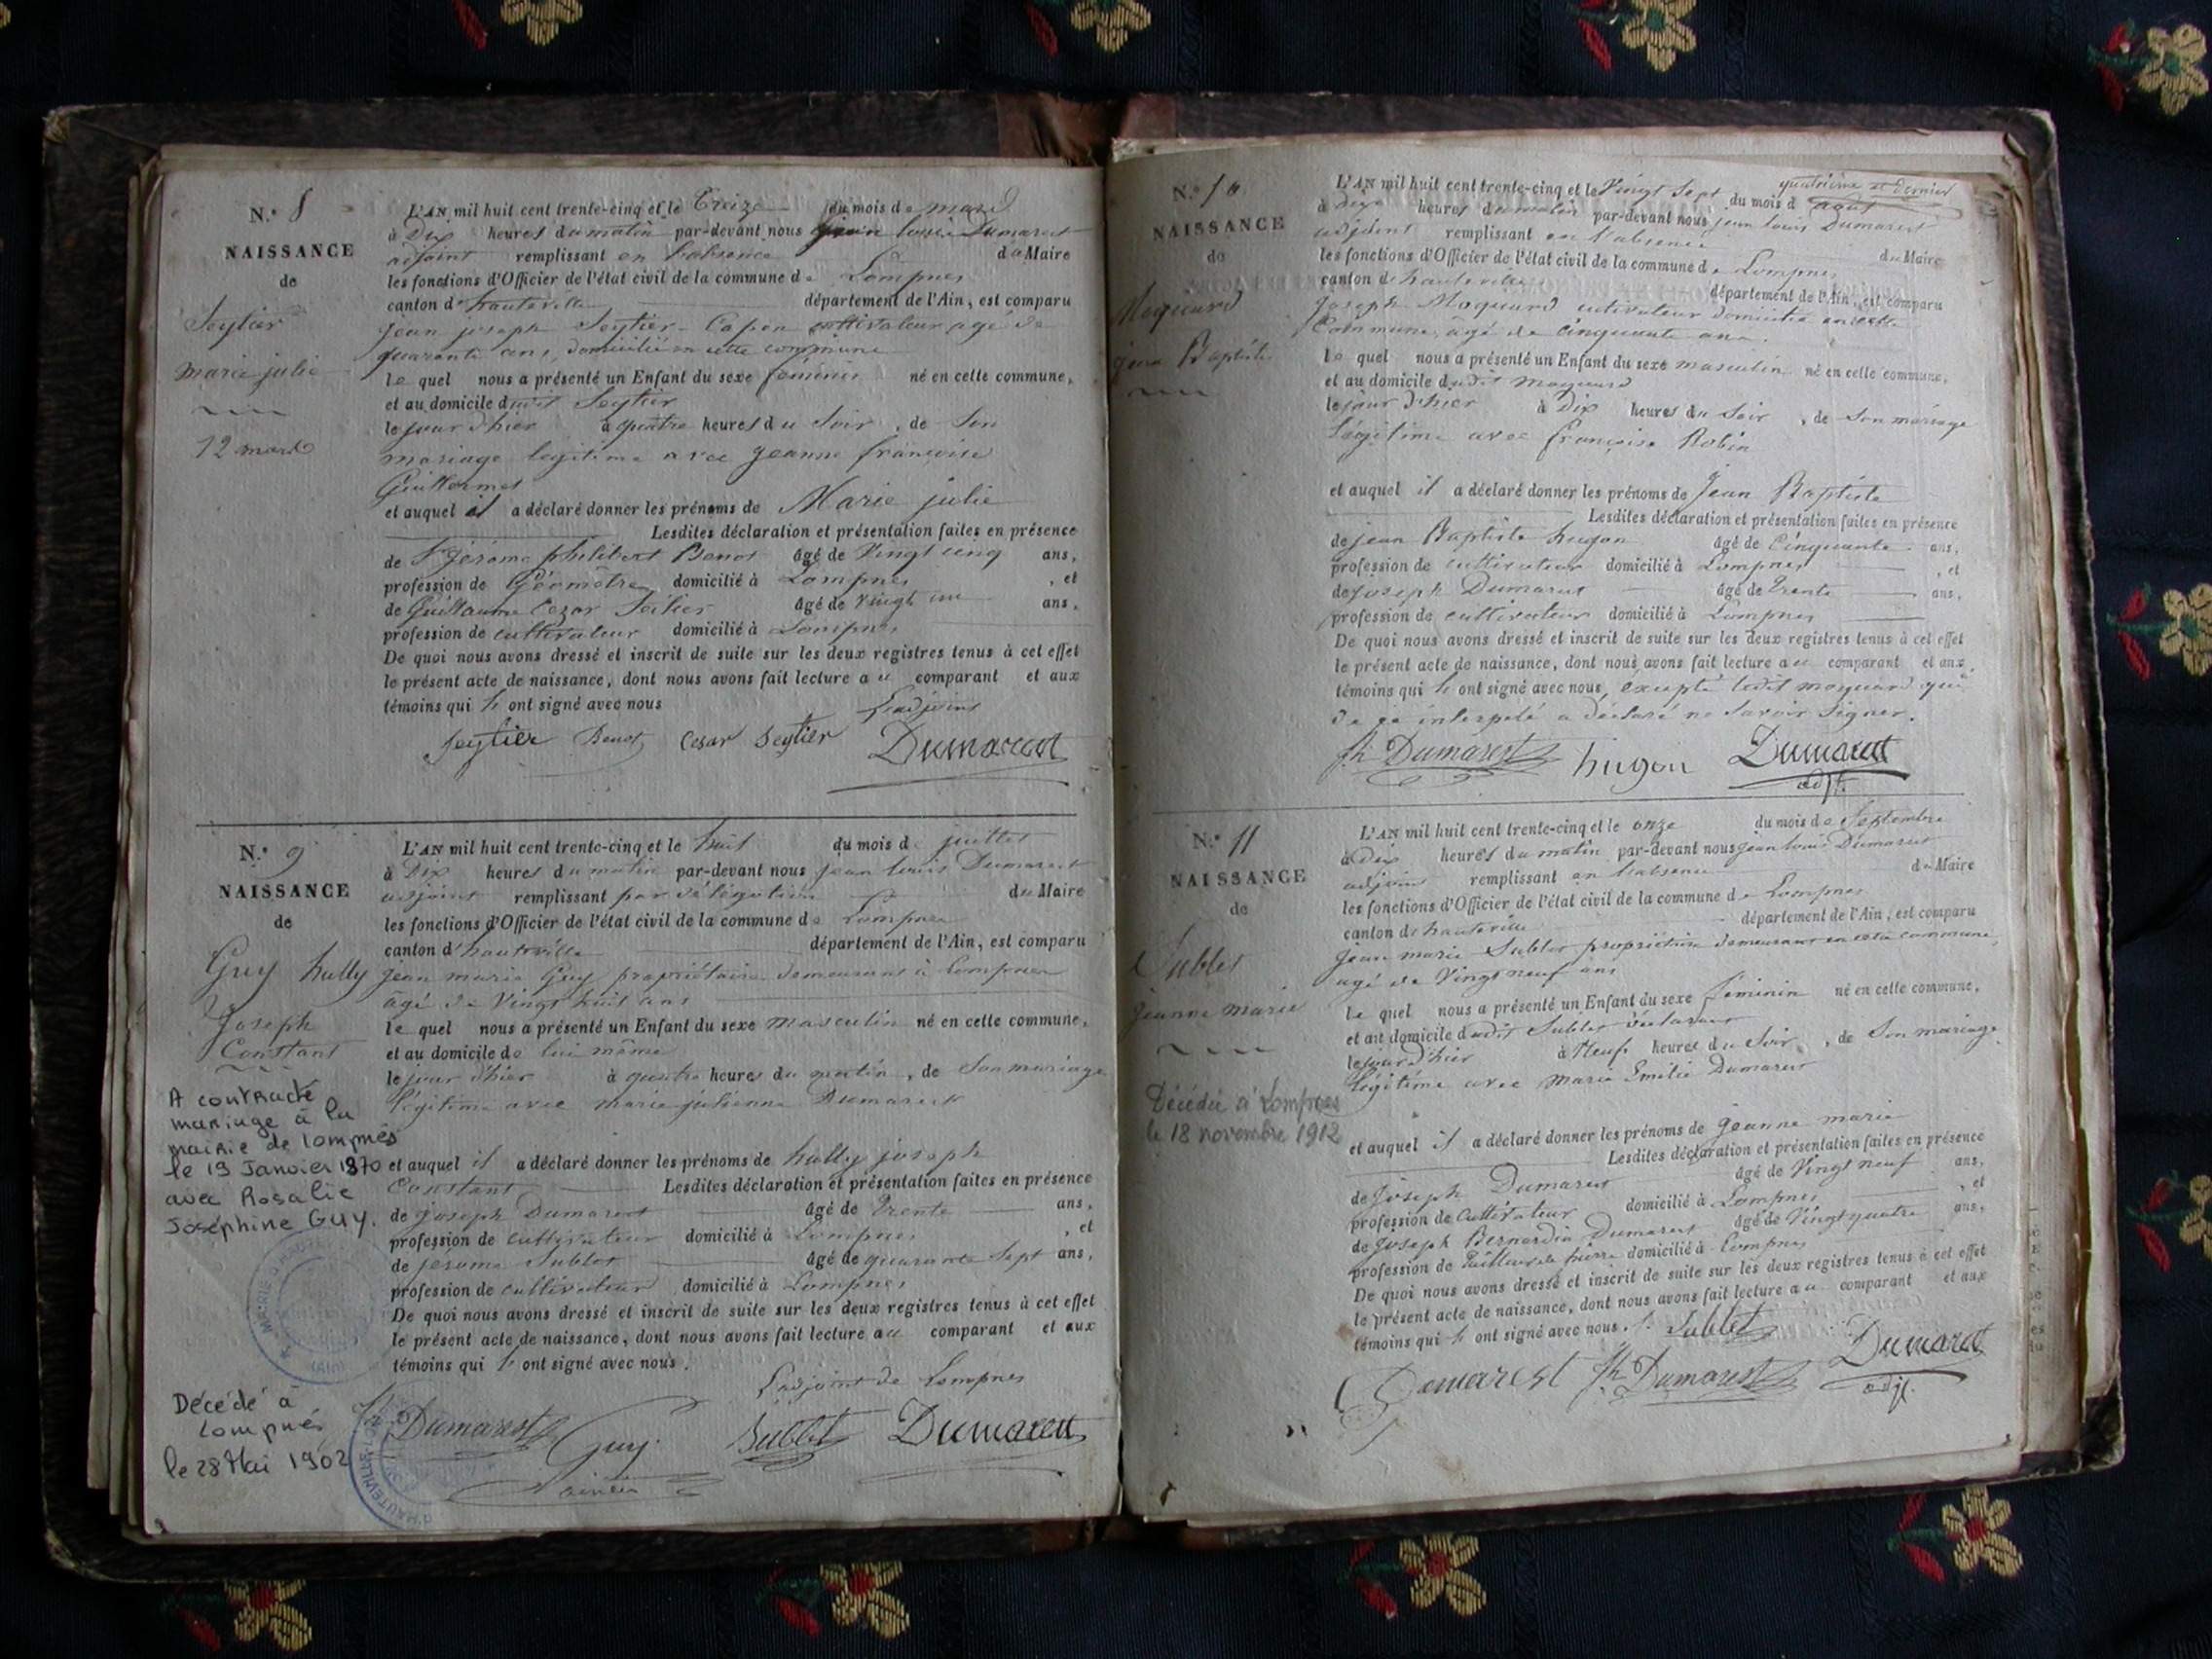 N.° 8
NAISSANCE
de
Seytier
marie julie
12 mars
L'AN mil huit cent trente-cinq et le Treize du mois de mars
à Dix heures du matin par-devant nous jean louis Dumarest
adjoint remplissant en l'absence du Maire
les fonctions d'Officier de l'état civil de la commune de Lompnes
canton d'hauteville département de l'Ain, est comparu
jean joseph Seytier-Capon cultivateur agé de
quarante ans, domicilié en cette commune
le quel nous a présenté un Enfant du sexe féminin né en cette commune,
et au domicile dudit Seytier
le jour d'hier à quatre heures du Soir, de Son
mariage légitime avec jeanne françoise
Guillermet
et auquel il a déclaré donner les prénoms de Marie julie
Lesdites déclaration et présentation faites en présence
de Sr jérome philibert Benot âgé de Vingt cinq ans,
profession de Géomètre domicilié à Lompnes, et
de Guillaume Cezar Seitier âgé de Vingt un ans,
profession de cultivateur domicilié à Lompnes
De quoi nous avons dressé et inscrit de suite sur les deux registres tenus à cet effet
le présent acte de naissance, dont nous avons fait lecture au comparant et aux
témoins qui ont signé avec nous
L'adjoint
Seytier Benot Cesar Seytier Dumarest
N.° 9
NAISSANCE
de
Guy hully
Joseph
Constant
A contracté
mariage à la
mairie de lompnés
le 19 Janvier 1870
avec Rosalie
Joséphine GUY.
Décédé à
Lompnés
le 28 Mai 1902
L'AN mil huit cent trente-cinq et le huit du mois de juillet
à Dix heures du matin par-devant nous jean louis Dumarest
adjoint remplissant par délégation du Maire
les fonctions d'Officier de l'état civil de la commune de Lompnes
canton d'hauteville département de l'Ain, est comparu
jean marie Guy propriétaire demeurant à Lompnes
âgé de Vingt huit ans
le quel nous a présenté un Enfant du sexe masculin né en cette commune,
et au domicile de lui même
le jour d'hier à quatre heures du matin, de Son mariage
légitime avec marie julienne Dumarest
et auquel il a déclaré donner les prénoms de hully joseph
Constant Lesdites déclaration et présentation faites en présence
de joseph Dumarest âgé de Trente ans,
profession de cultivateur domicilié à Lompnes, et
de jérome Sublet âgé de quarante Sept ans,
profession de cultivateur domicilié à Lompnes
De quoi nous avons dressé et inscrit de suite sur les deux registres tenus à cet effet
le présent acte de naissance, dont nous avons fait lecture au comparant et aux
témoins qui ont signé avec nous.
L'adjoint de Lompnes
Jh Dumarest Guy Sublet Dumarest
N.° 10
NAISSANCE
de
Moquard
jean Baptiste
quatrième et dernier
L'AN mil huit cent trente-cinq et le Vingt Sept du mois d'aout
à dix heures du matin par-devant nous jean louis Dumarest
adjoint remplissant en l'absence du Maire
les fonctions d'Officier de l'état civil de la commune de Lompnes
canton de hauteville département de l'Ain, est comparu
joseph Moquard cultivateur domicilié en cette
Commune, âgé de cinquante ans.
le quel nous a présenté un Enfant du sexe masculin né en cette commune,
et au domicile dudit moquard
le jour d'hier à Dix heures du Soir, de Son mariage
légitime avec françoise Robin
et auquel il a déclaré donner les prénoms de Jean Baptiste
Lesdites déclaration et présentation faites en présence
de jean Baptiste hugon âgé de Cinquante ans,
profession de cultivateur domicilié à Lompnes, et
de joseph Dumarest âgé de Trente ans,
profession de cultivateur domicilié à Lompnes
De quoi nous avons dressé et inscrit de suite sur les deux registres tenus à cet effet
le présent acte de naissance, dont nous avons fait lecture au comparant et aux
témoins qui ont signé avec nous, excepté ledit moquard qui
de ce interpelé a déclaré ne Savoir Signer.
Jh Dumarest hugon Dumarest
adjt.
N.° 11
NAISSANCE
de
Sublet
jeanne marie
Décédée à Lompnes
le 18 novembre 1912
L'AN mil huit cent trente-cinq et le onze du mois de Septembre
à Dix heures du matin par-devant nous jean louis Dumarest
adjoint remplissant en l'absence du Maire
les fonctions d'Officier de l'état civil de la commune de Lompnes
canton de hauteville département de l'Ain, est comparu
jean marie Sublet propriétaire demeurant en cette commune,
agé de Vingt neuf ans
le quel nous a présenté un Enfant du sexe féminin né en cette commune,
et au domicile dudit Sublet déclarant
le jour d'hier à Neuf heures du Soir, de Son mariage
légitime avec marie Emélie Dumarest
et auquel il a déclaré donner les prénoms de jeanne marie
Lesdites déclaration et présentation faites en présence
de joseph Dumarest âgé de Vingt neuf ans,
profession de cultivateur domicilié à Lompnes, et
de joseph Bernardin Dumarest âgé de Vingt quatre ans,
profession de Tailleur de pierre domicilié à Lompnes
De quoi nous avons dressé et inscrit de suite sur les deux registres tenus à cet effet
le présent acte de naissance, dont nous avons fait lecture au comparant et aux
témoins qui ont signé avec nous. Sublet
Dumarest Jh Dumarest Dumarest
adjt.